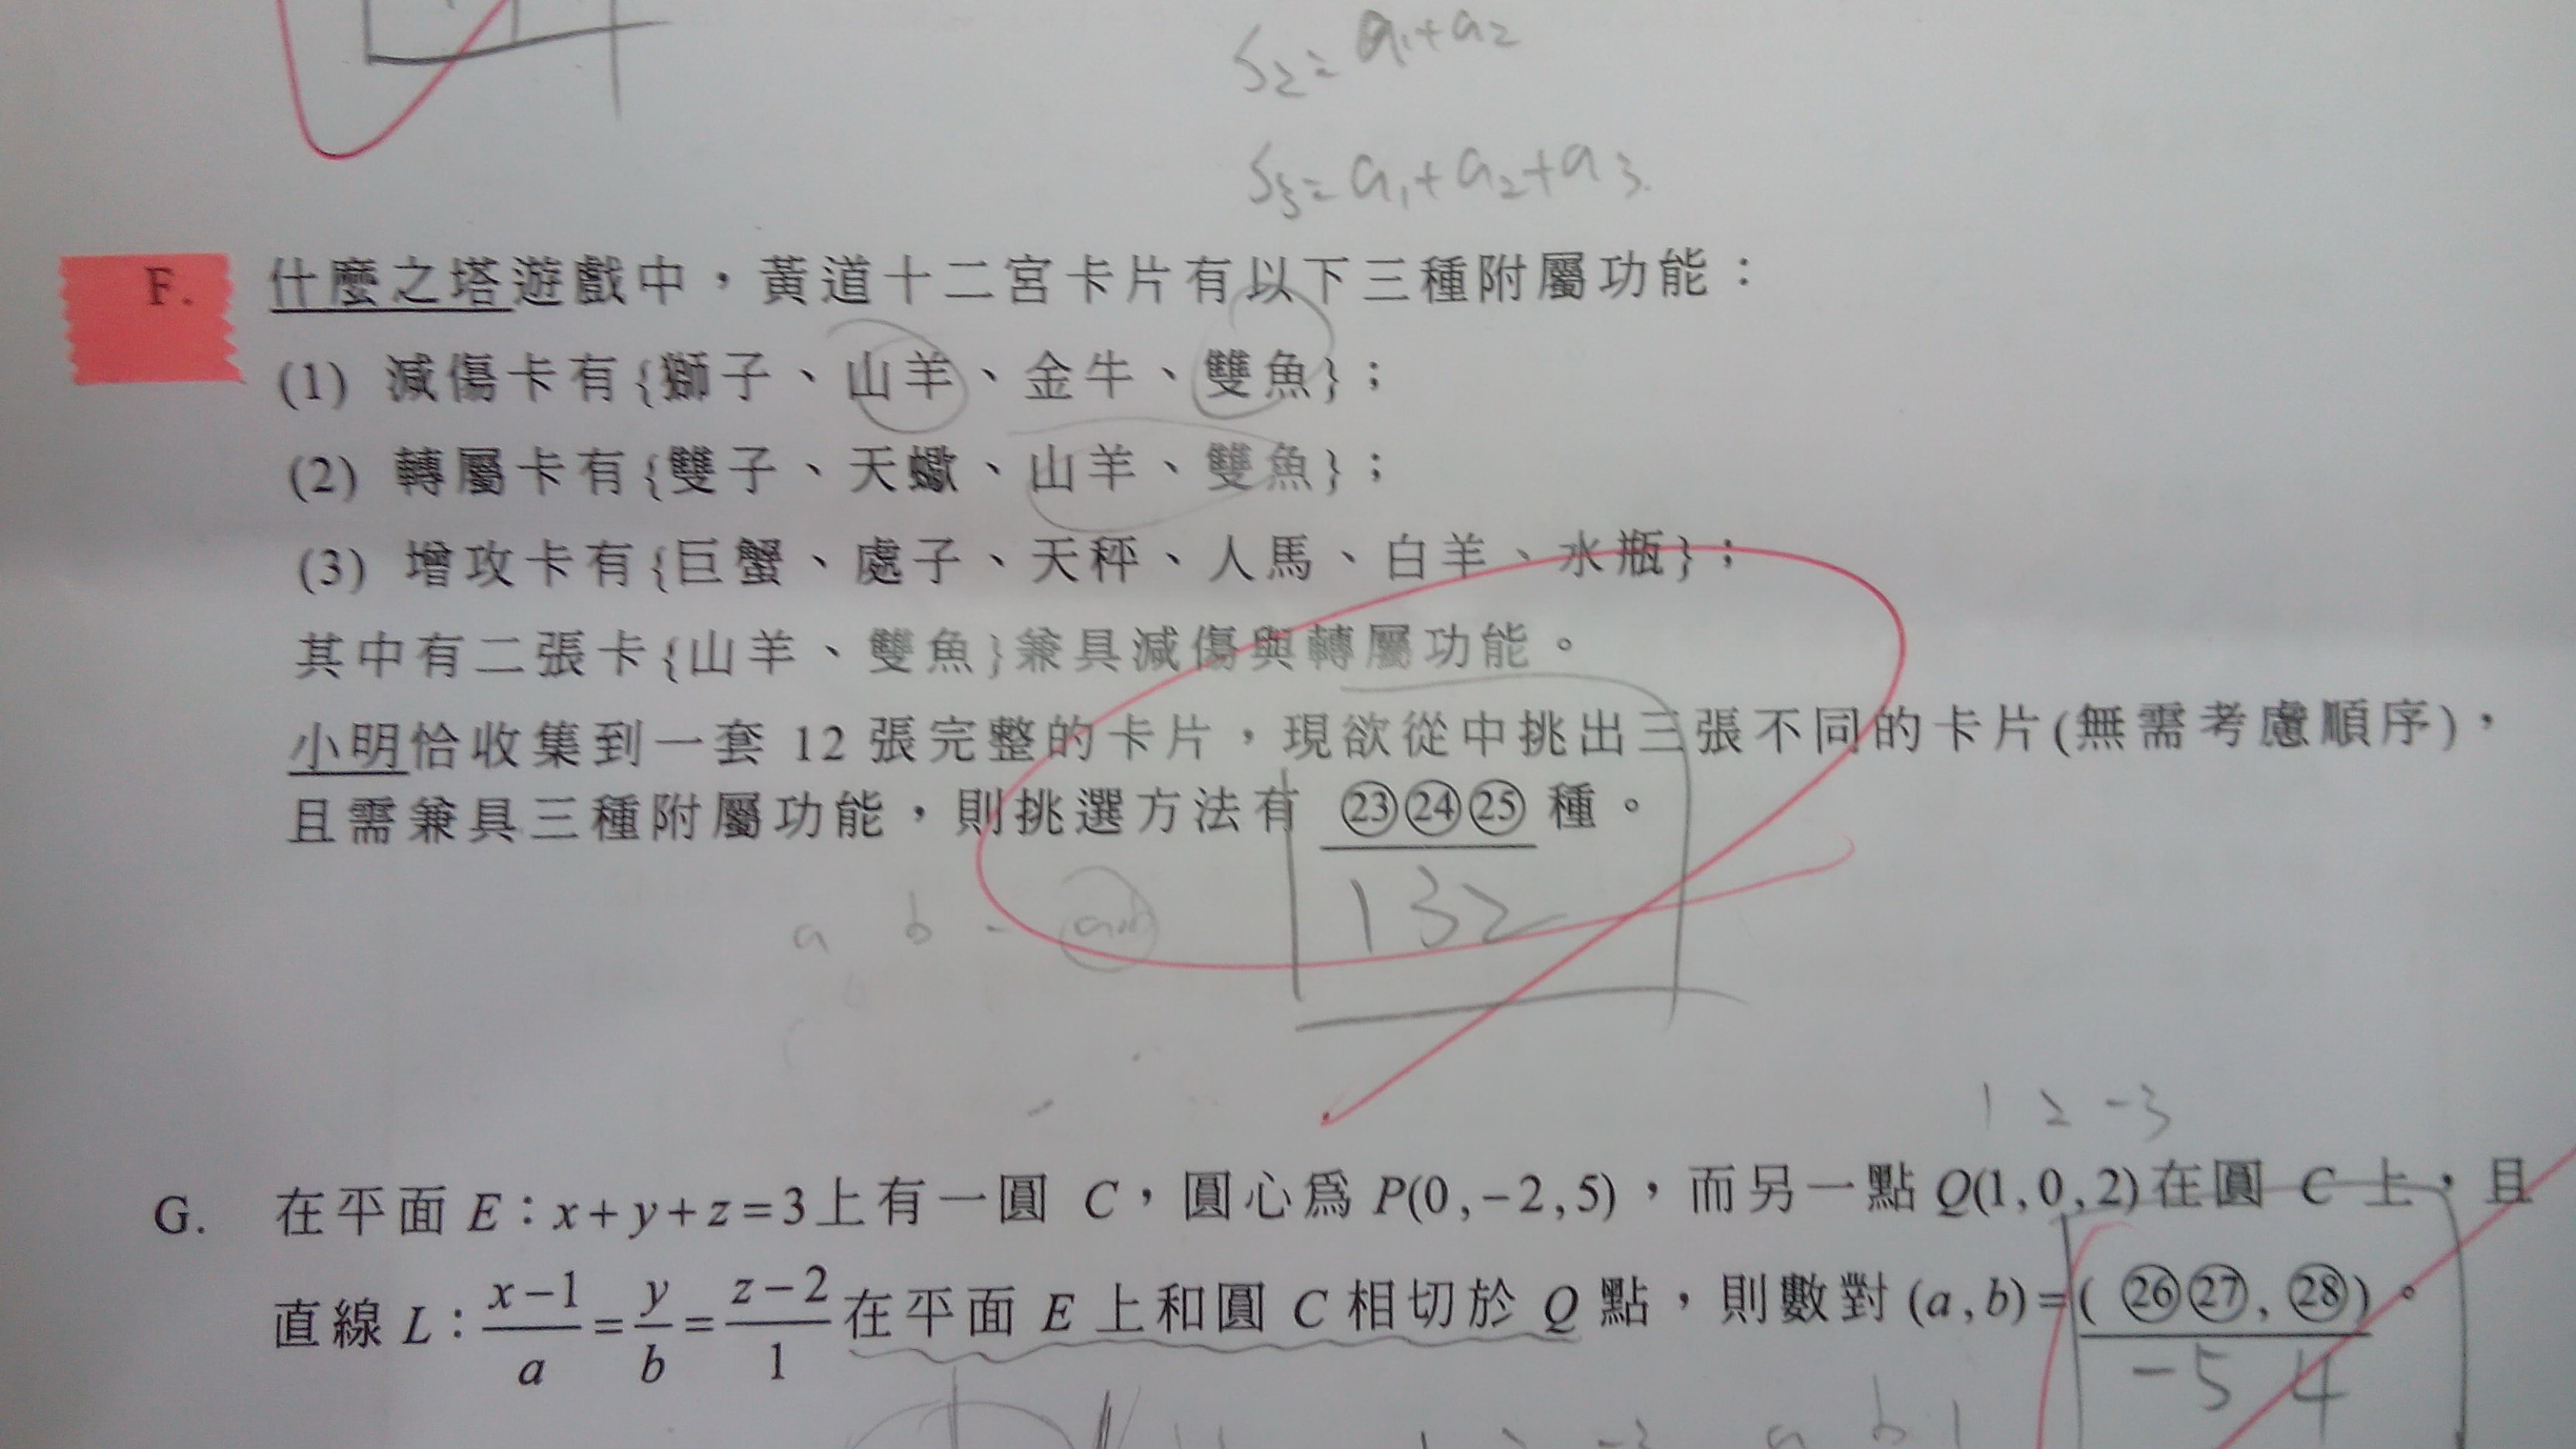 S₂ = a₁+a₂
S₃ = a₁+a₂+a₃
F. 什麼之塔遊戲中,黃道十二宮卡片有以下三種附屬功能:
(1) 減傷卡有{獅子、山羊、金牛、雙魚};
(2) 轉屬卡有{雙子、天蠍、山羊、雙魚};
(3) 增攻卡有{巨蟹、處子、天秤、人馬、白羊、水瓶};
其中有二張卡{山羊、雙魚}兼具減傷與轉屬功能。
小明恰收集到一套 12 張完整的卡片,現欲從中挑出三張不同的卡片(無需考慮順序),
且需兼具三種附屬功能,則挑選方法有 ㉓㉔㉕ 種。
132
a b
1 2 -3
G. 在平面 E:x+y+z=3上有一圓 C,圓心為 P(0,-2,5),而另一點 Q(1,0,2)在圓 C 上,且
直線 L:(x-1)/a = y/b = (z-2)/1 在平面 E 上和圓 C 相切於 Q 點,則數對 (a,b)=( ㉖㉗, ㉘)。
-5 4
a b 1